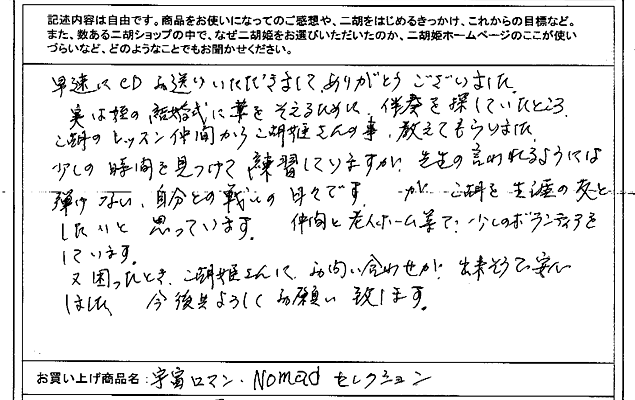 記述内容は自由です。商品をお使いになってのご感想や、二胡をはじめるきっかけ、これからの目標など。
また、数ある二胡ショップの中で、なぜ二胡姫をお選びいただいたのか、二胡姫ホームページのここが使い
づらいなど、どのようなことでもお聞かせください。
早速にCDお送りいただきましてありがとうございました。
実は姪の結婚式に華をそえるために、伴奏を探していたところ
二胡のレッスン仲間から二胡姫さんの事、教えてもらいました。
少しの時間を見つけて練習していますが、先生の言われるようには
弾けない、自分との戦いの日々です。が、二胡を生涯の友と
したいと思っています。仲間と老人ホーム等で、少しのボランティアを
しています。
又困ったとき、二胡姫さんに、お問い合わせが、出来そうで安心
しました 今後共よろしくお願い致します。
お買い上げ商品名：宇宙ロマン・Nomadセレクション